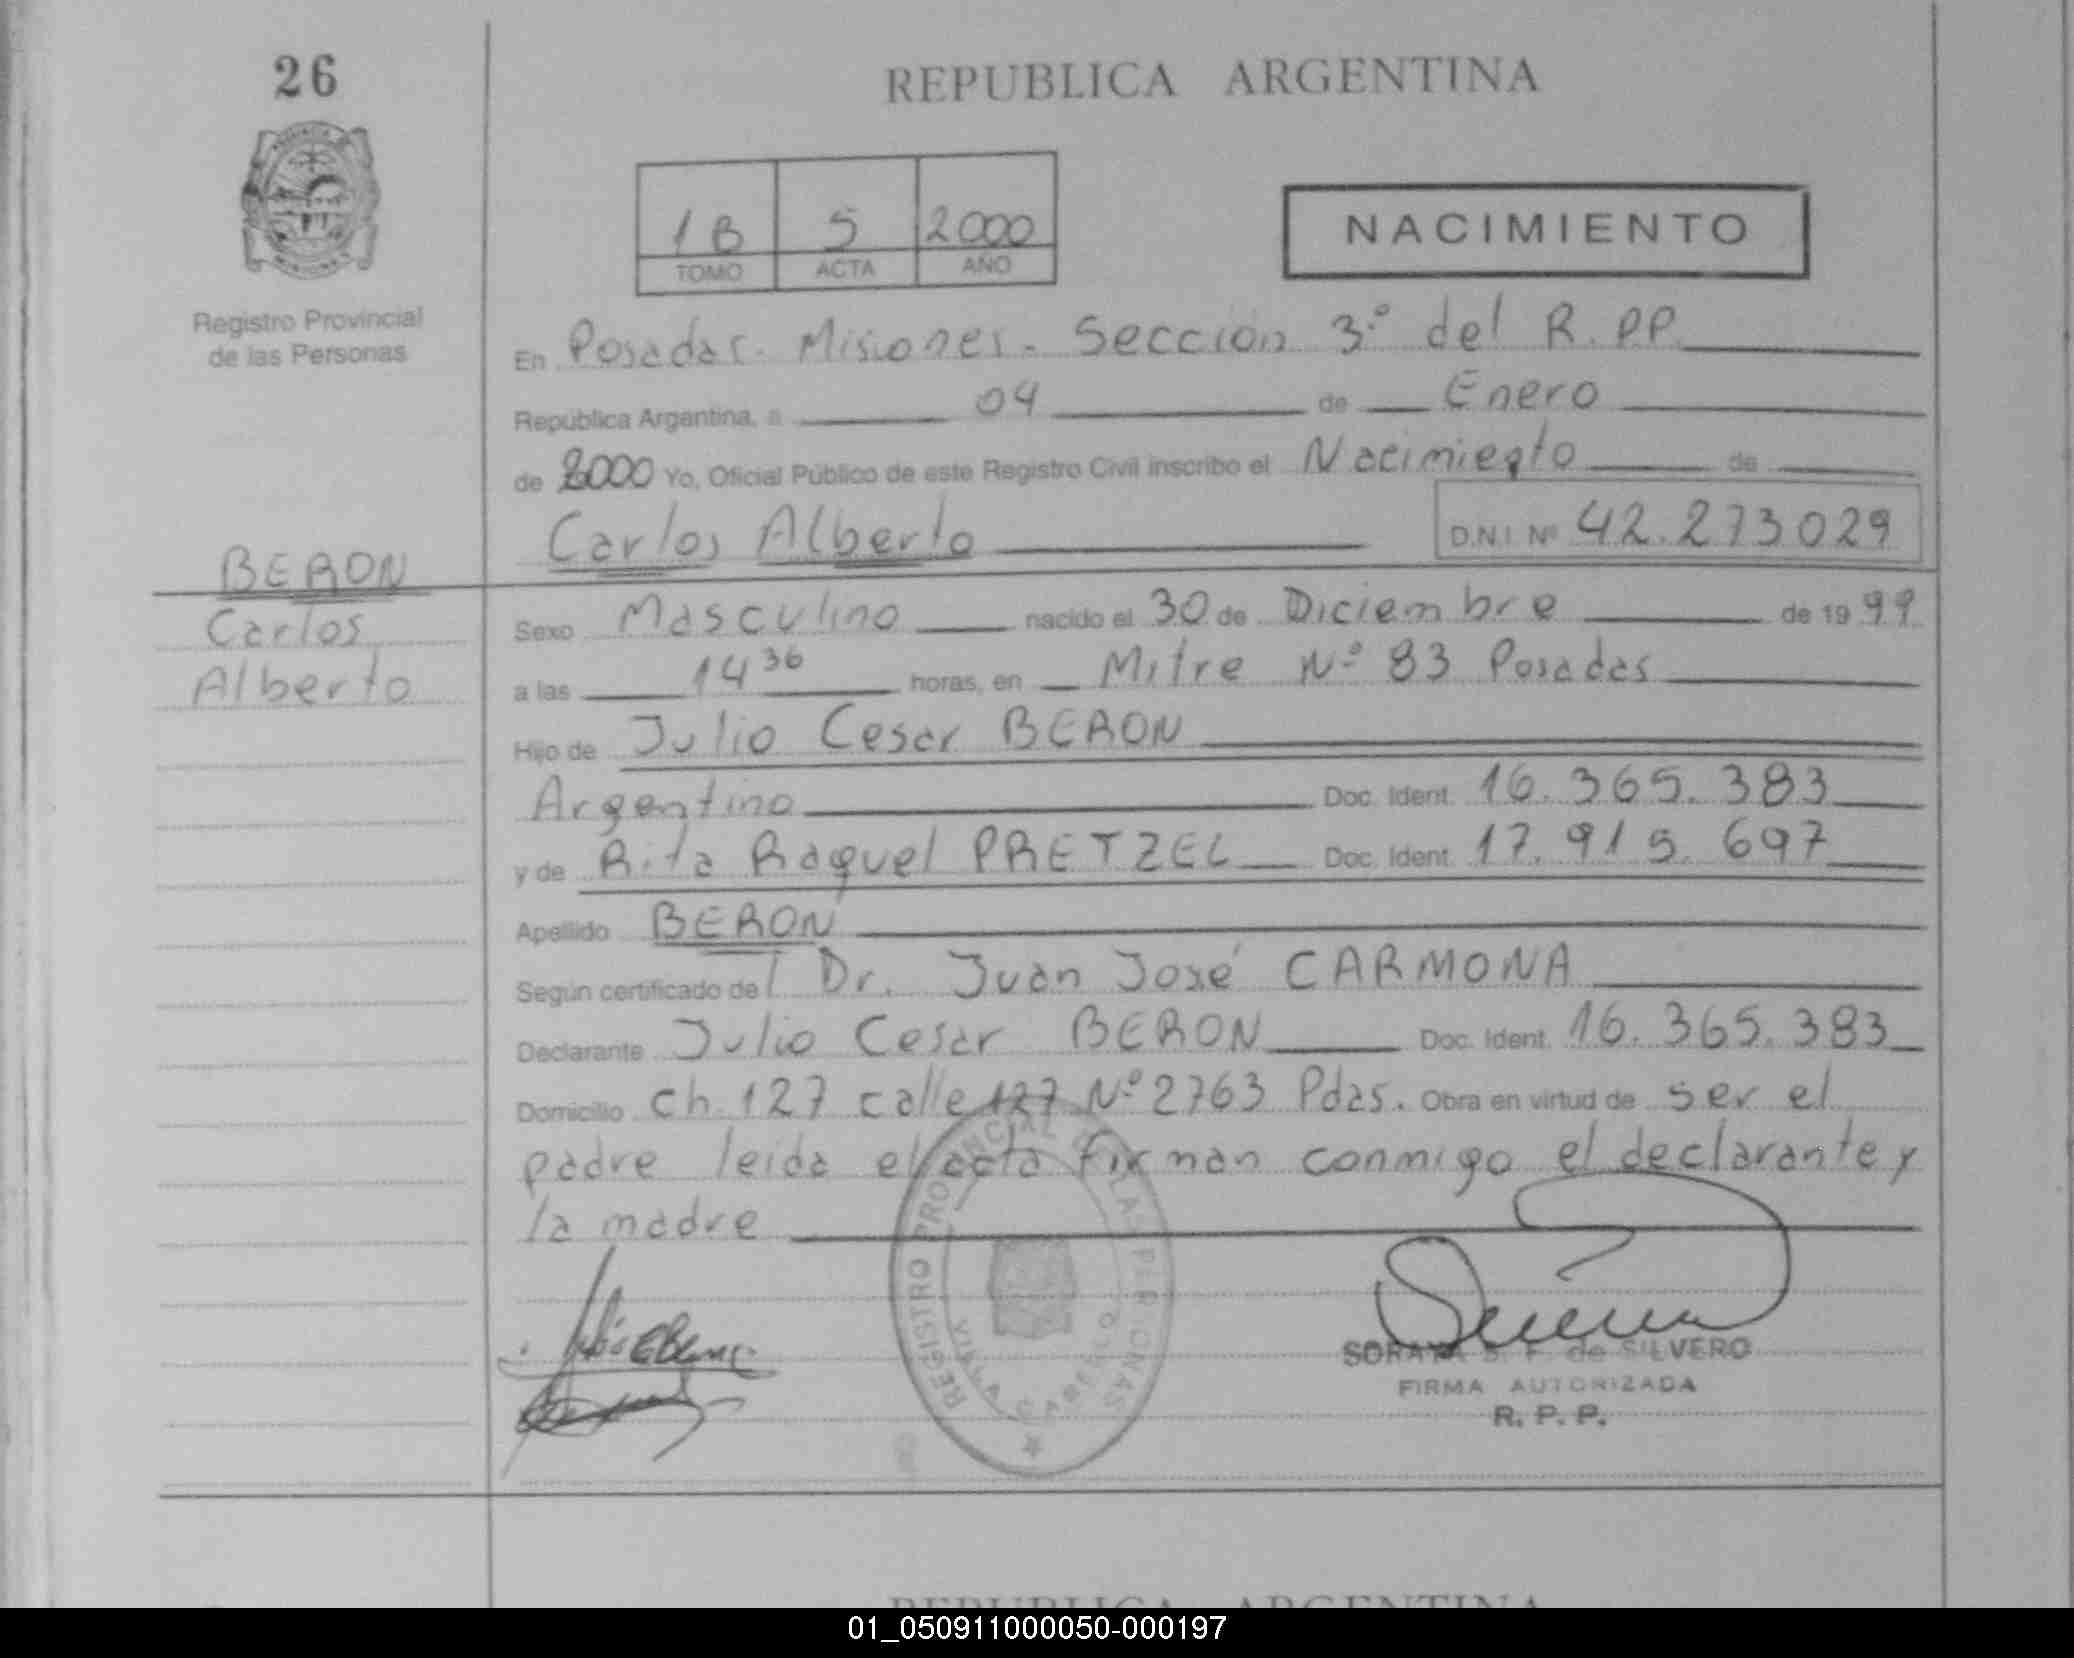 26
REPUBLICA ARGENTINA
1B 5 2000
TOMO ACTA AÑO
NACIMIENTO
Registro Provincial
de las Personas
En Posadas. Misiones. Sección 3º del R.P.P.
República Argentina, a 04 de Enero
de 2000 Yo, Oficial Público de este Registro Civil inscribo el Nacimiento de
Carlos Alberto D.N.I. Nº 42.273029
BERON
Carlos
Alberto
Sexo Masculino nacido el 30 de Diciembre de 1999
a las 14 36 horas, en Mitre Nº 83 Posadas
Hijo de Julio Cesar BERON
Argentino Doc. Ident. 16.365.383
y de Rita Raquel PRETZEL Doc. Ident. 17.915.697
Apellido BERON
Según certificado del Dr. Juan José CARMONA
Declarante Julio Cesar BERON Doc. Ident. 16.365.383
Domicilio ch. 127 calle 127 Nº 2763 Pdas. Obra en virtud de ser el
padre leida el acta firman conmigo el declarante y
la madre
REGISTRO PROVINCIAL DE LAS PERSONAS
VILLA CABELLO
SORAYA S. F. de SILVERO
FIRMA AUTORIZADA
R. P. P.
REPUBLICA ARGENTINA
01_050911000050-000197